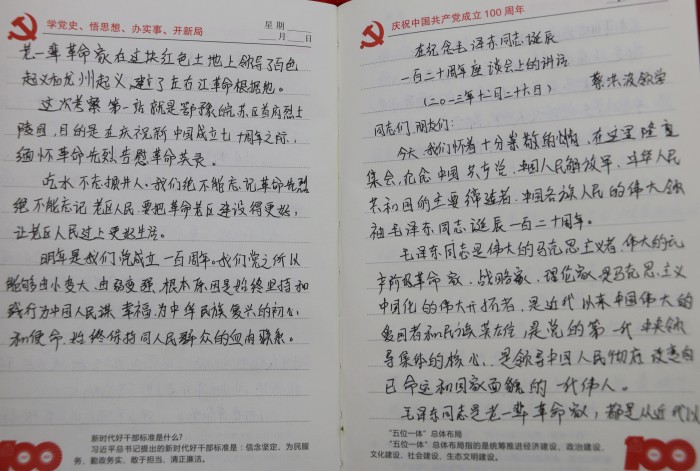 学党史、悟思想、办实事、开新局
星期
月 日
老一辈革命家在这块红色土地上领导了百色
起义和龙州起义,建立了左右江革命根据地。
这次考察第一站就是鄂豫皖苏区首府烈士
陵园,目的是在庆祝新中国成立七十周年之际,
缅怀革命先烈告慰革命英灵。
吃水不忘掘井人。我们绝不能忘记革命先烈
绝不能忘记老区人民,要把革命老区建设得更好,
让老区人民过上更好生活。
明年是我们党成立一百周年。我们党之所以
能够由小变大、由弱变强,根本原因是始终坚持和
践行为中国人民谋幸福,为中华民族复兴的初心
和使命,始终保持同人民群众的血肉联系。
新时代好干部标准是什么?
习近平总书记提出的新时代好干部标准是:信念坚定、为民服
务、勤政务实、敢于担当、清正廉洁。
100
庆祝中国共产党成立100周年
在纪念毛泽东同志诞辰
一百二十周年座谈会上的讲话
(二〇一三年十二月二十六日)
同志们,朋友们:
今天,我们怀着十分崇敬的心情,在这里隆重
集会,纪念中国共产党、中国人民解放军、中华人民
共和国的主要缔造者,中国各族人民的伟大领
袖毛泽东同志诞辰一百二十周年。
毛泽东同志是伟大的马克思主义者,伟大的无
产阶级革命家、战略家、理论家,是马克思主义
中国化的伟大开拓者,是近代以来中国伟大的
爱国者和民族英雄,是党的第一代中央领
导集体的核心,是领导中国人民彻底改变自
己命运和国家面貌的一代伟人。
毛泽东同志是老一辈革命家,都是从近代以
“五位一体”总体布局
“五位一体”总体布局指的是统筹推进经济建设、政治建设、
文化建设、社会建设、生态文明建设。
100